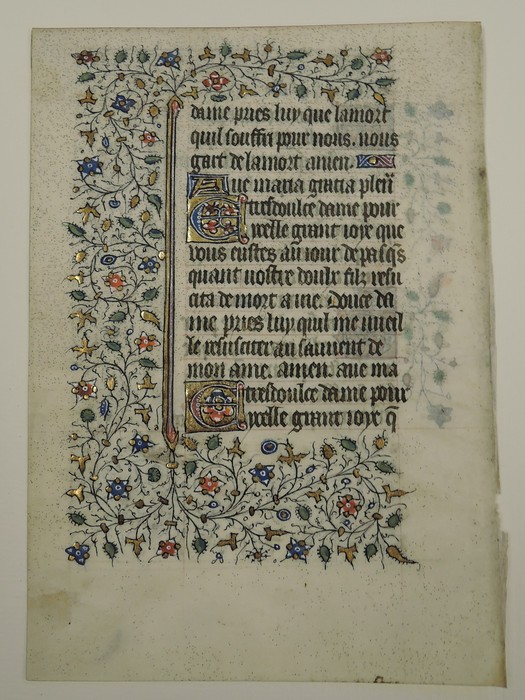 dame pries luy que la mort
quil souffri pour nous. nous
gart de la mort amen.
Aue maria gracia pleñ
E tresdoulce dame pour
ycelle grant ioye que
vous eustes au iour de pasq̃s
quant vostre doulz filz resu
cita de mort a uie. Douce da
me pries luy quil me vueil
le resusciter au sauuent de
mon ame. amen. aue ma
E tresdoulce dame pour
ycelle grant ioye q̃